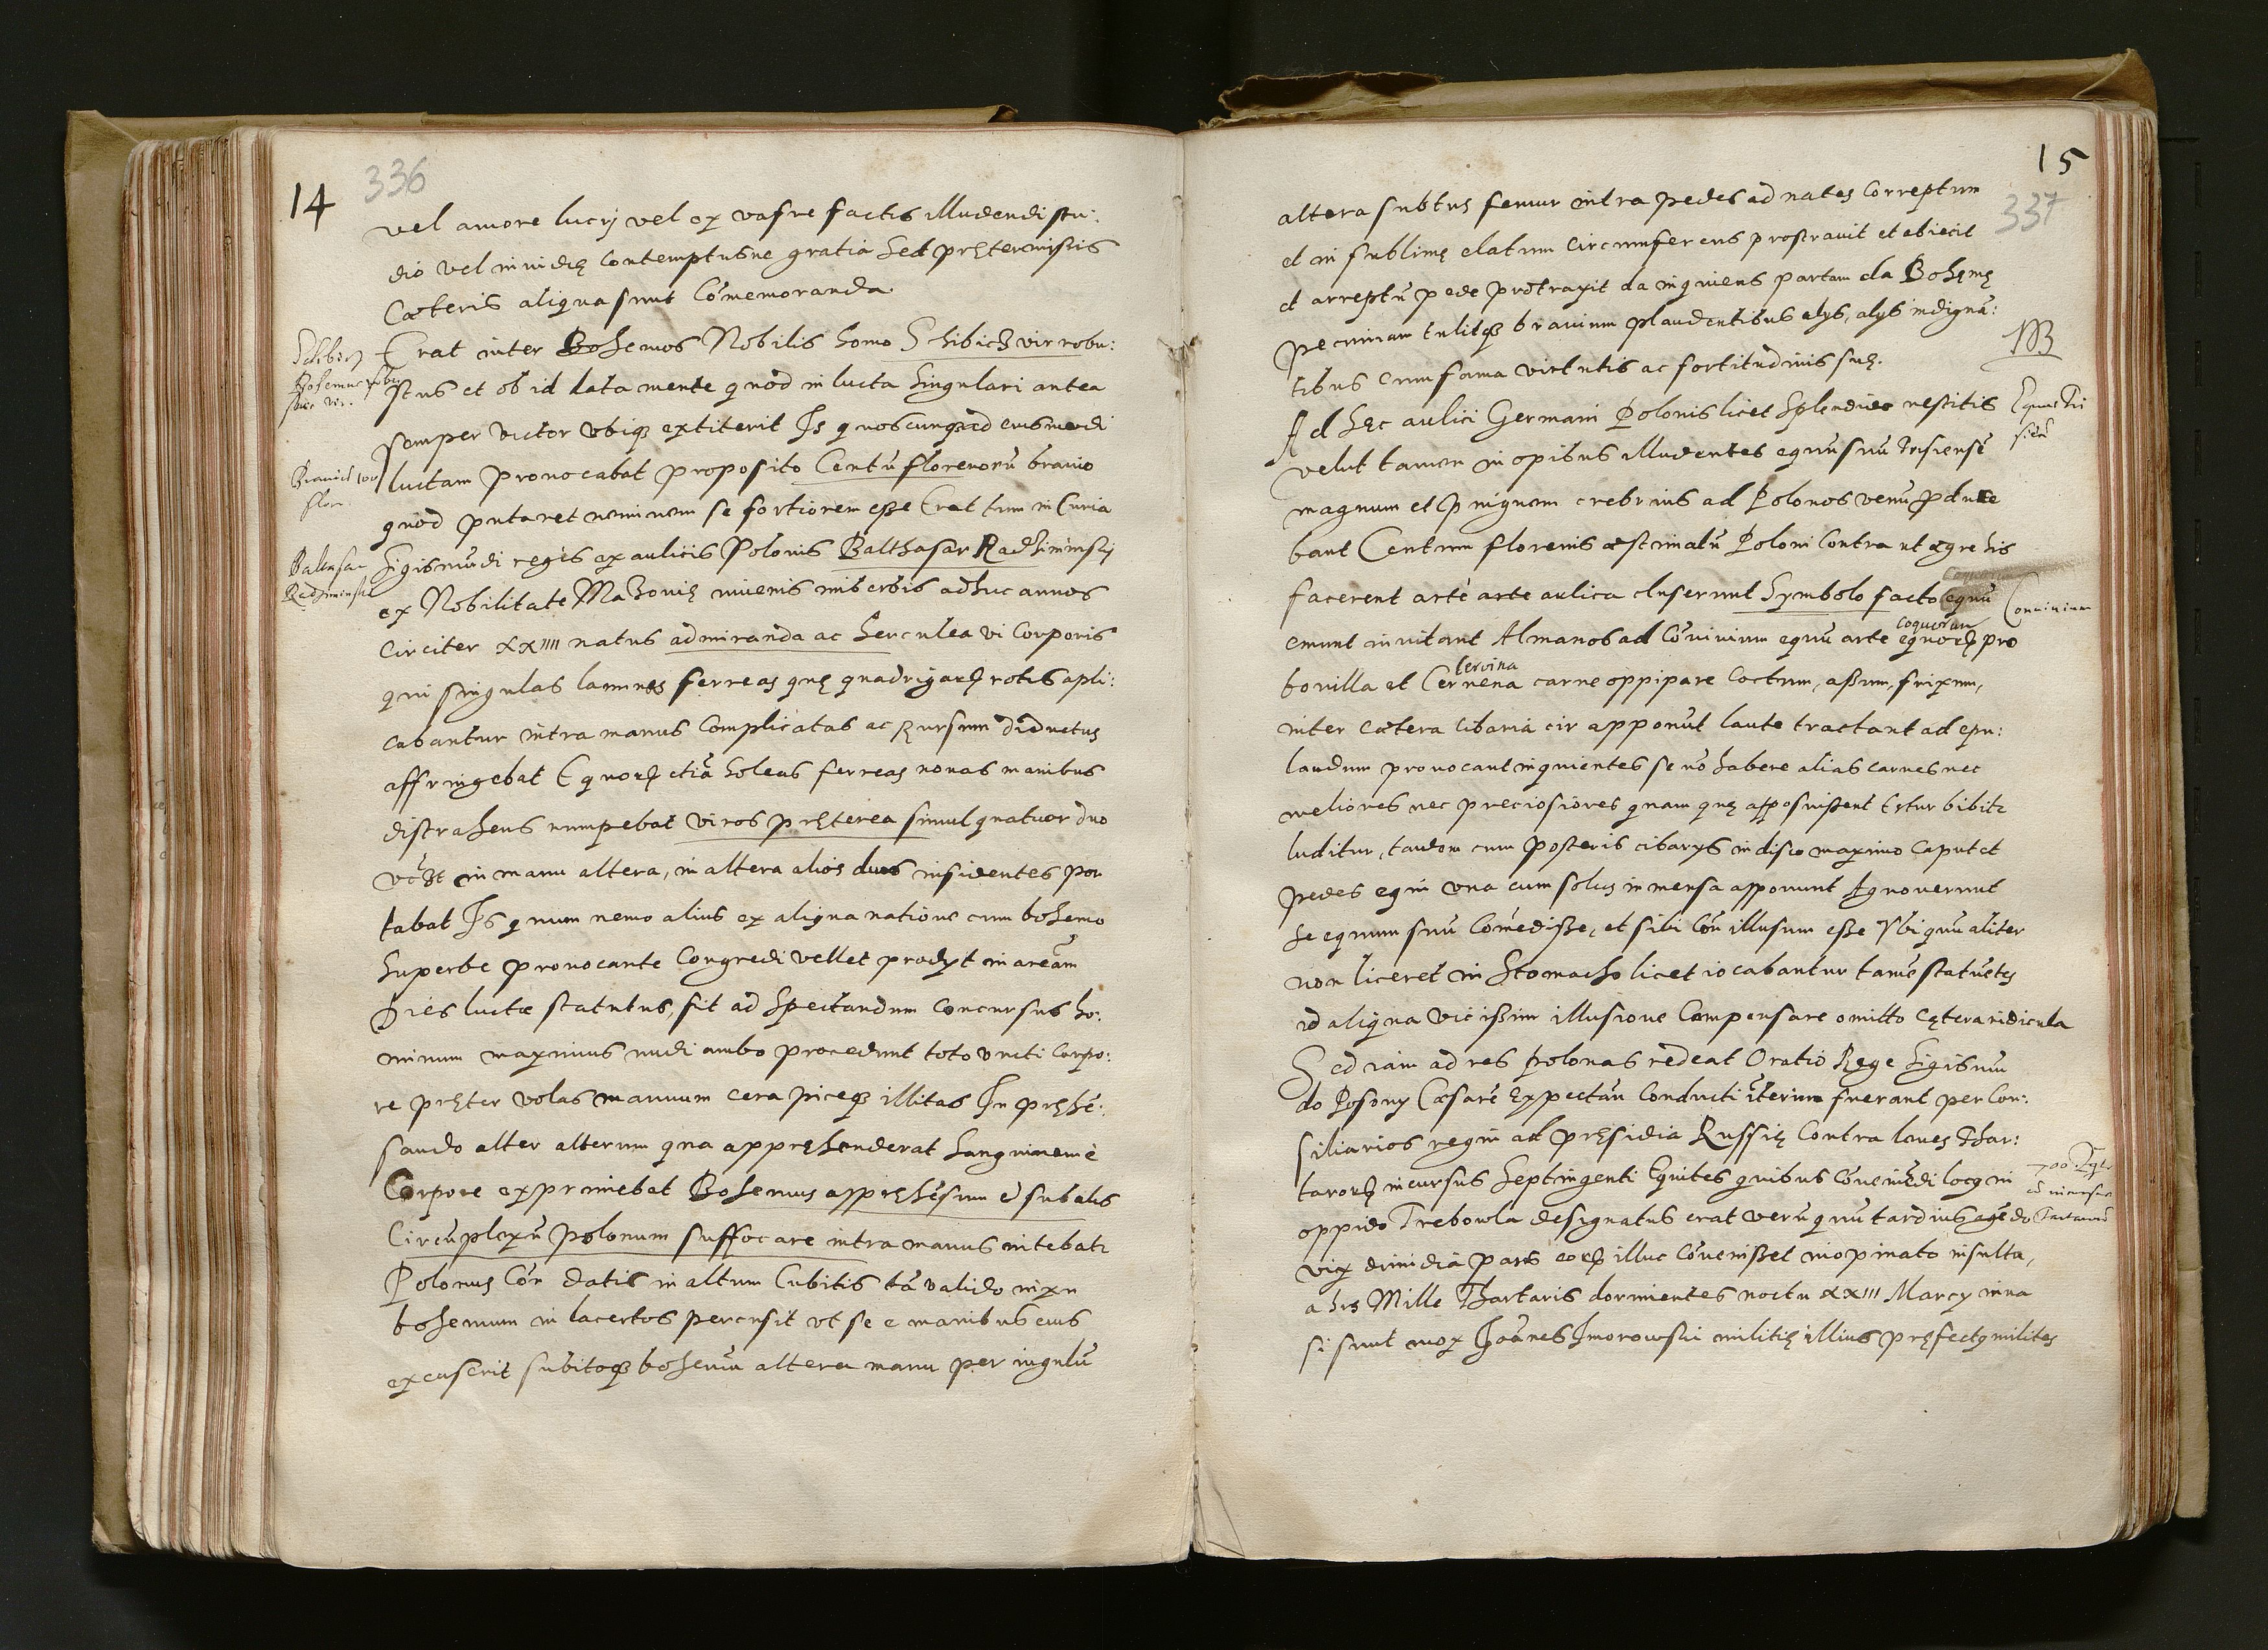 14
336
vel amore lucrj vel ex vafre factis illudendi stu:
dio vel inuidię contemptusue gratia Sed prętermissis
Cæteris aliqua sunt Cōmemoranda.
Erat inter Bohemos Nobilis homo Schibich vir robu:
stus et ob id lata mente quod in lucta singulari antea
semper victor vbiqȝ extiterit Js quoscunqȝ ad eiusmodi
luctam prouocabat proposito Centū florenorū brauio
quod putaret neminem se fortiorem eße Erat tum in Curia
Sigismūdi regis ex aulicis Polonis Balthasar Radhiminsky
ex Nobilitate Mazouię iuuenis imberbis adhuc annos
circiter xxiiii natus admiranda ac herculea vi Corporis
qui singulas laminas ferreas quę quadrigarꝝ rotis apli:
cabantur intra manus Complicatas ac Rursum diductas
affringebat Equorꝝ etiā soleas ferreas nouas manibus
distrahens rumpebat viros pręterea simul quatuor duo
in manu altera, in altera alios duos insidentes por
tabat Js quum nemo alius ex aliqua natione cum bohemo
superbe prouocante Congredi vellet prodijt in areām
Dies luctæ statutus, fit ad Spectandum concursus ho:
minum maximus nudi ambo procedunt toto vncti Corpo:
re pręter volas manuum cera piceqȝ illitas Jn pręhē:
sando alter alterum qua appręhenderat sanguinem è
Corpore exprimebat Bohemus appręhēsum è sub alis
Circūplexū Polonum suffocare intra manus nitebatr
Polonus Cōn datis in altum Cubitis tā valido nixu
bohemum in lacertos percusit vt se e manibus eius
excuserit subitoqȝ bohemū altera manu per iugulū
Bohemus robu
stus vir.
Brauiū 100
flor
Baltasar
Radziminski
15
337
altera subtus femur intra pedes ad nates Correptum
et in sublimę elatum Circumferens prostrauit et abiecit
et arreptū pede protraxit da inquiens partam da Bohęmę
pecuniam tulitqȝ brauium plaudentibus alys, alys indignā:
tibus cum fama virtutis ac fortitudinis suę.
Ad hęc aulici Germani Polonis licet Splendide vestitis
velut tamen inopibus illudentes equū suū Frisiensē
magnum et pinguem crebrius ad Polonos venū ꝑduce
bant Centum florenis æstimatū Poloni Contra ut ægre his
facerent arte arte aulica luserunt Symbolo facto equū
emunt inuitant Almanos ad Cōuiuium equū arte equorꝝ pro
coquorum
bouilla et Ceruena carne oppipare Coctum, aßum, frixum,
Ceruina
inter Cætera Cibaria cir apponūt laute tractant ad epu:
landum prouocant inquientes se nō habere alias carnes nec
meliores nec preciosiores quam quę apposuißent Estur bibitr
luditur, tandem cum posteris cibarys in disco maximo Caput et
pedes equi vna cum soleis in mensa apponunt Agnouerunt
se equum suū Comediße, et sibi Cōn illusum eße Vbi quū aliter
non liceret in Stomacho licet iocabantur tamē statuētes
id aliqua vicißim illusione Compensare omitto cętera ridicula
Sed iam ad res polonas redeat Oratio Rege Sigismū
do Posony Cæsarē Expectāti Conducti iterim fuerant per Con:
siliarios regni ad pręsidia Russię Contra leues Thar:
tarorꝝ incursus Septingenti Equites quibus Conueniēdi locus in
oppido Trebowla designatus erat verū quū tardius eūdo
vix dimidia pars eorꝝ illuc Cōuenißet inopinato insulta,
a his Mille Thartaris dormientes noctu xxiii Marcy inua
si sunt mox Joānes Jmorowski militię illius pręfectus milites
NB
Equus Fri
siēs
Conuiuium
700. Eqt
Tartarorū